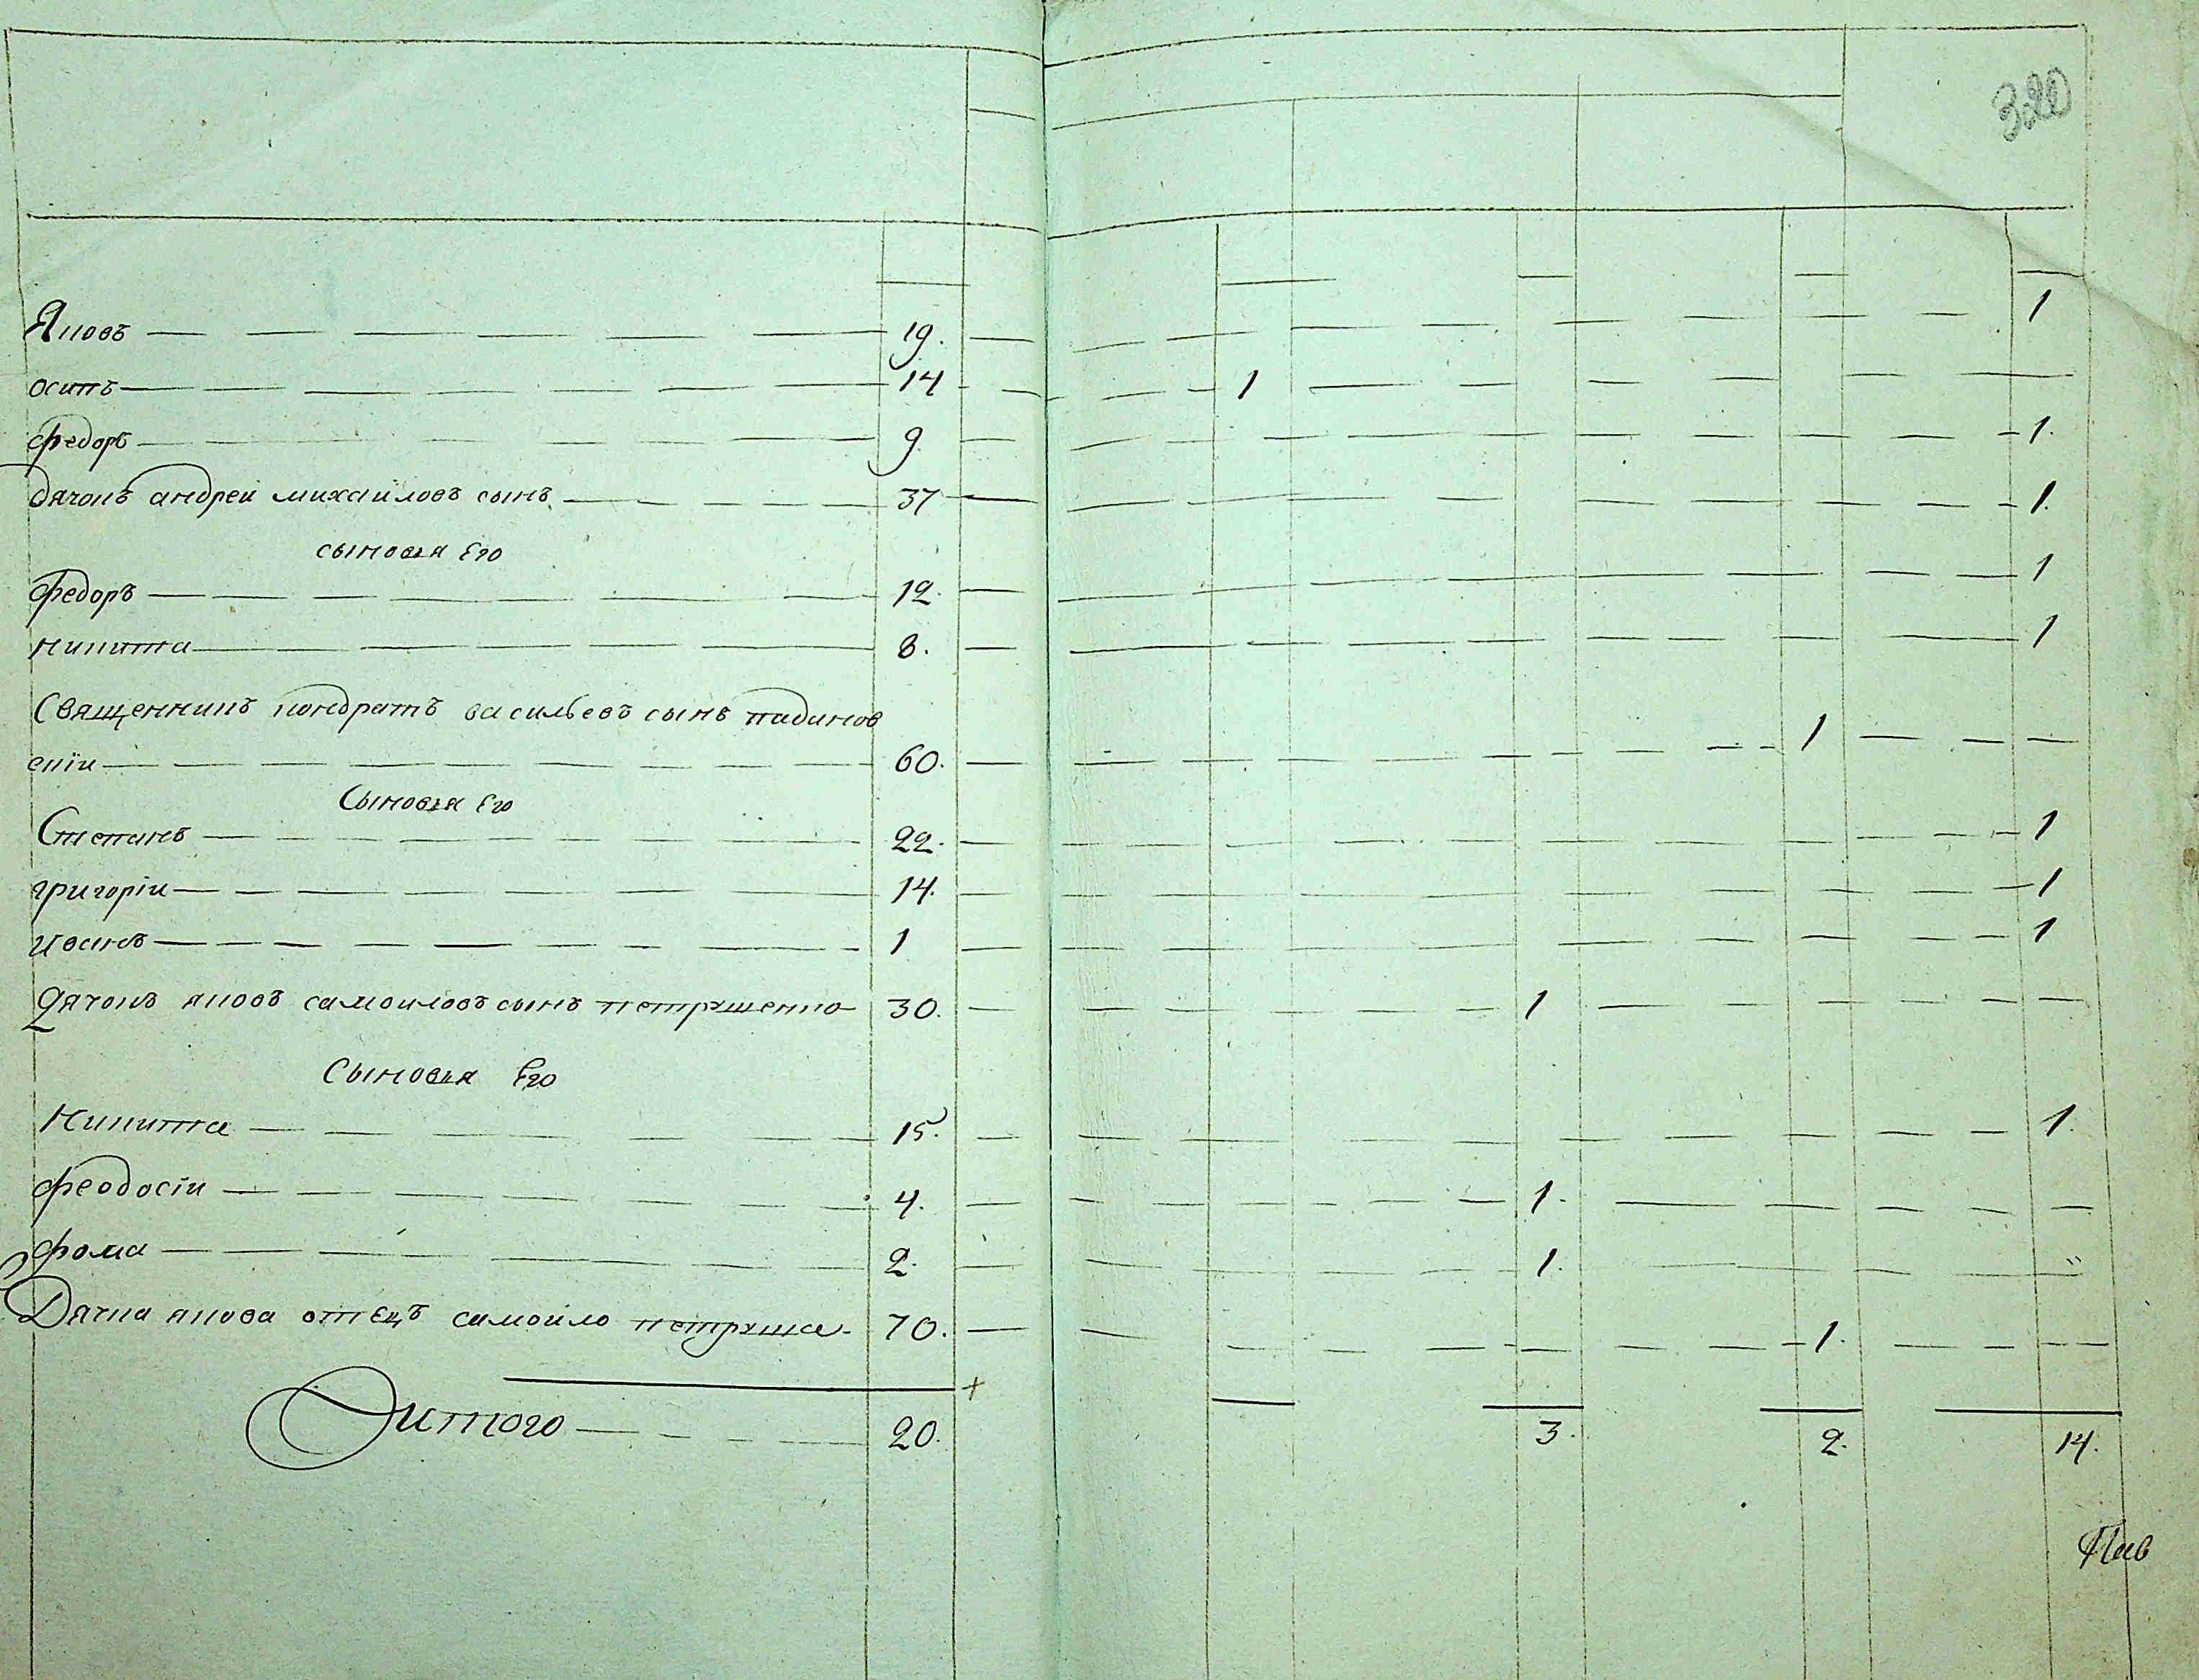 320
Яковъ 19. 1
осипъ 14 1
федоръ 9 1.
дячокъ андреи михаиловъ сынъ 37 1.
сыновья Его
федоръ 12. 1
никита 8. 1
Священникъ кондратъ васильевъ сынъ
60. 1
Сыновья Его
Степанъ 22. 1
григоріи 14. 1
иванъ 1 1
Дячокъ яковъ самоиловъ сынъ петрушенко 30. 1
Сыновья Его
Никита 15. 1.
феодосіи 4. 1.
фома 2. 1.
Дячка якова отецъ самоило петруша 70. 1.
Итого 20. 3. 2. 14.